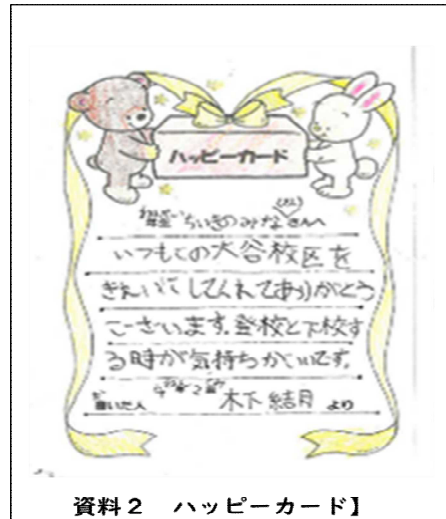 ハッピーカード
ちいきのみなさんへ
いつもこの大谷校区を
きれいにしてくれてありがとう
ございます。登校と下校す
る時が気持ちがいいです。
書いた人 4年2組 木下 結月 より
資料2 ハッピーカード】